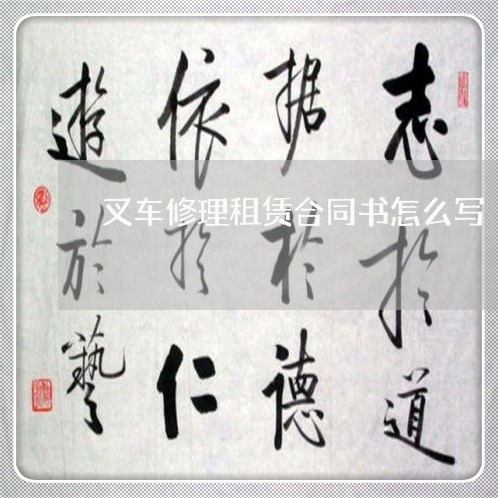 志於道
据於德
依於仁
遊於藝
叉车修理租赁合同书怎么写